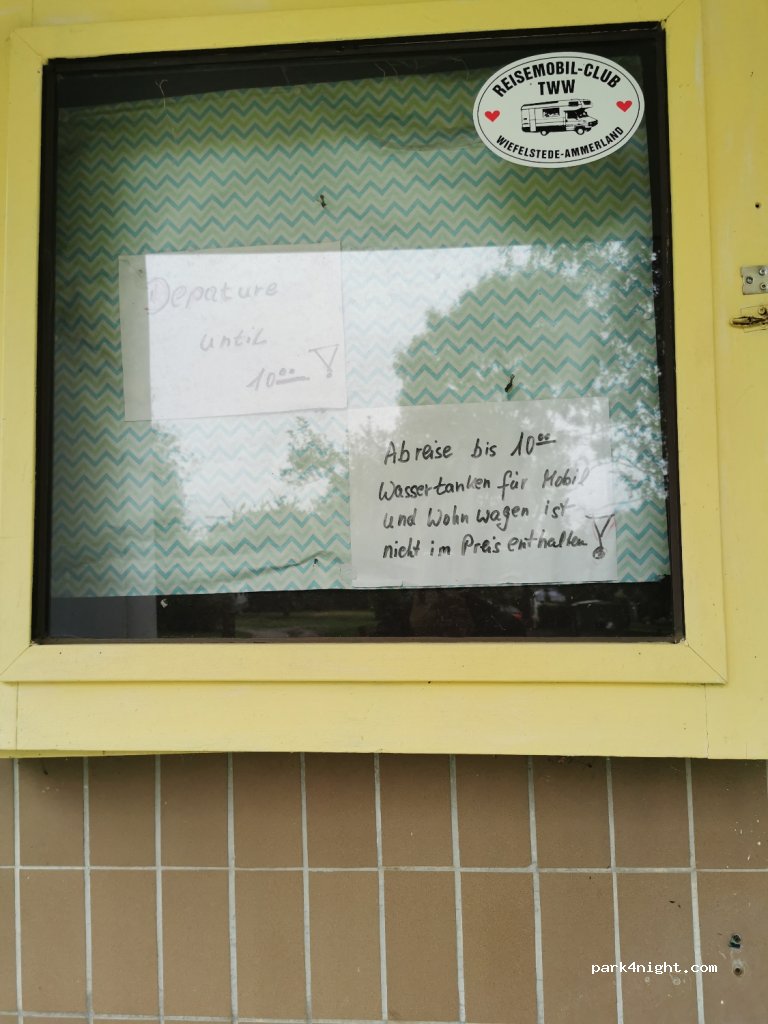 REISEMOBIL-CLUB
TWW
WIEFELSTEDE-AMMERLAND
Depature
until
10⁰⁰ !
Abreise bis 10⁰⁰
Wassertanken für Mobil
und Wohnwagen ist
nicht im Preis enthalten !
park4night.com